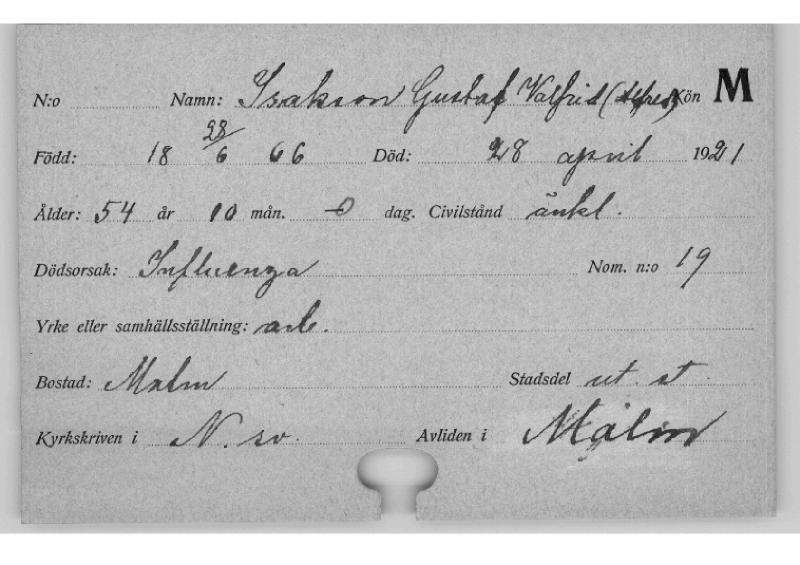 N:o Namn: Isakson Gustaf Valfrid (Alfred) Kön M
Född: 18 28/6 66 Död: 28 april 1921
Ålder: 54 år 10 mån. 0 dag. Civilstånd änkl.
Dödsorsak: Influenza Nom. n:o 19
Yrke eller samhällsställning: arb.
Bostad: Malm Stadsdel ut. st.
Kyrkskriven i N. sv. Avliden i Malm